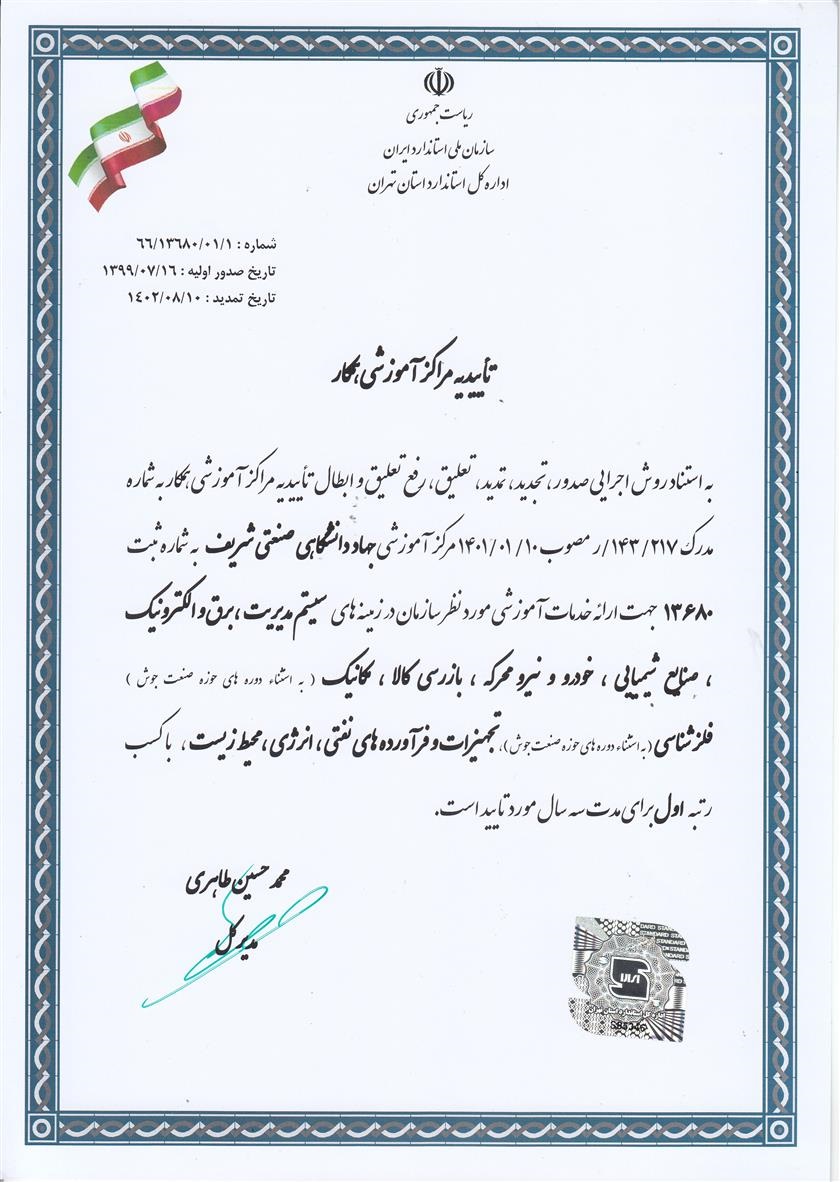 ریاست جمهوری
سازمان ملی استاندارد ایران
اداره کل استاندارد استان تهران
شماره : ۶۶/۱۳۶۸۰/۰۱/۱
تاریخ صدور اولیه : ۱۳۹۹/۰۷/۱۶
تاریخ تمدید : ۱۴۰۲/۰۸/۱۰
تأییدیه مراکز آموزشی همکار
به استناد روش اجرایی صدور، تجدید، تمدید، تعلیق، رفع تعلیق و ابطال تأییدیه مراکز آموزشی همکار به شماره
مدرک ۱۴۳/۲۱۷/ر مصوب ۱۴۰۱/۰۱/۱۰ مرکز آموزشی جهاد دانشگاهی صنعتی شریف به شماره ثبت
۱۳۶۸۰ جهت ارائه خدمات آموزشی مورد نظر سازمان در زمینه های سیستم مدیریت ، برق و الکترونیک
، صنایع شیمیایی ، خودرو و نیرو محرکه ، بازرسی کالا ، مکانیک ( به استثناء دوره های حوزه صنعت جوش )
فلزشناسی (به استثناء دوره های حوزه صنعت جوش)، تجهیزات و فرآورده های نفتی ، انرژی ، محیط زیست ، با کسب
رتبه اول برای مدت سه سال مورد تایید است.
محمد حسین طاهری
مدیر کل